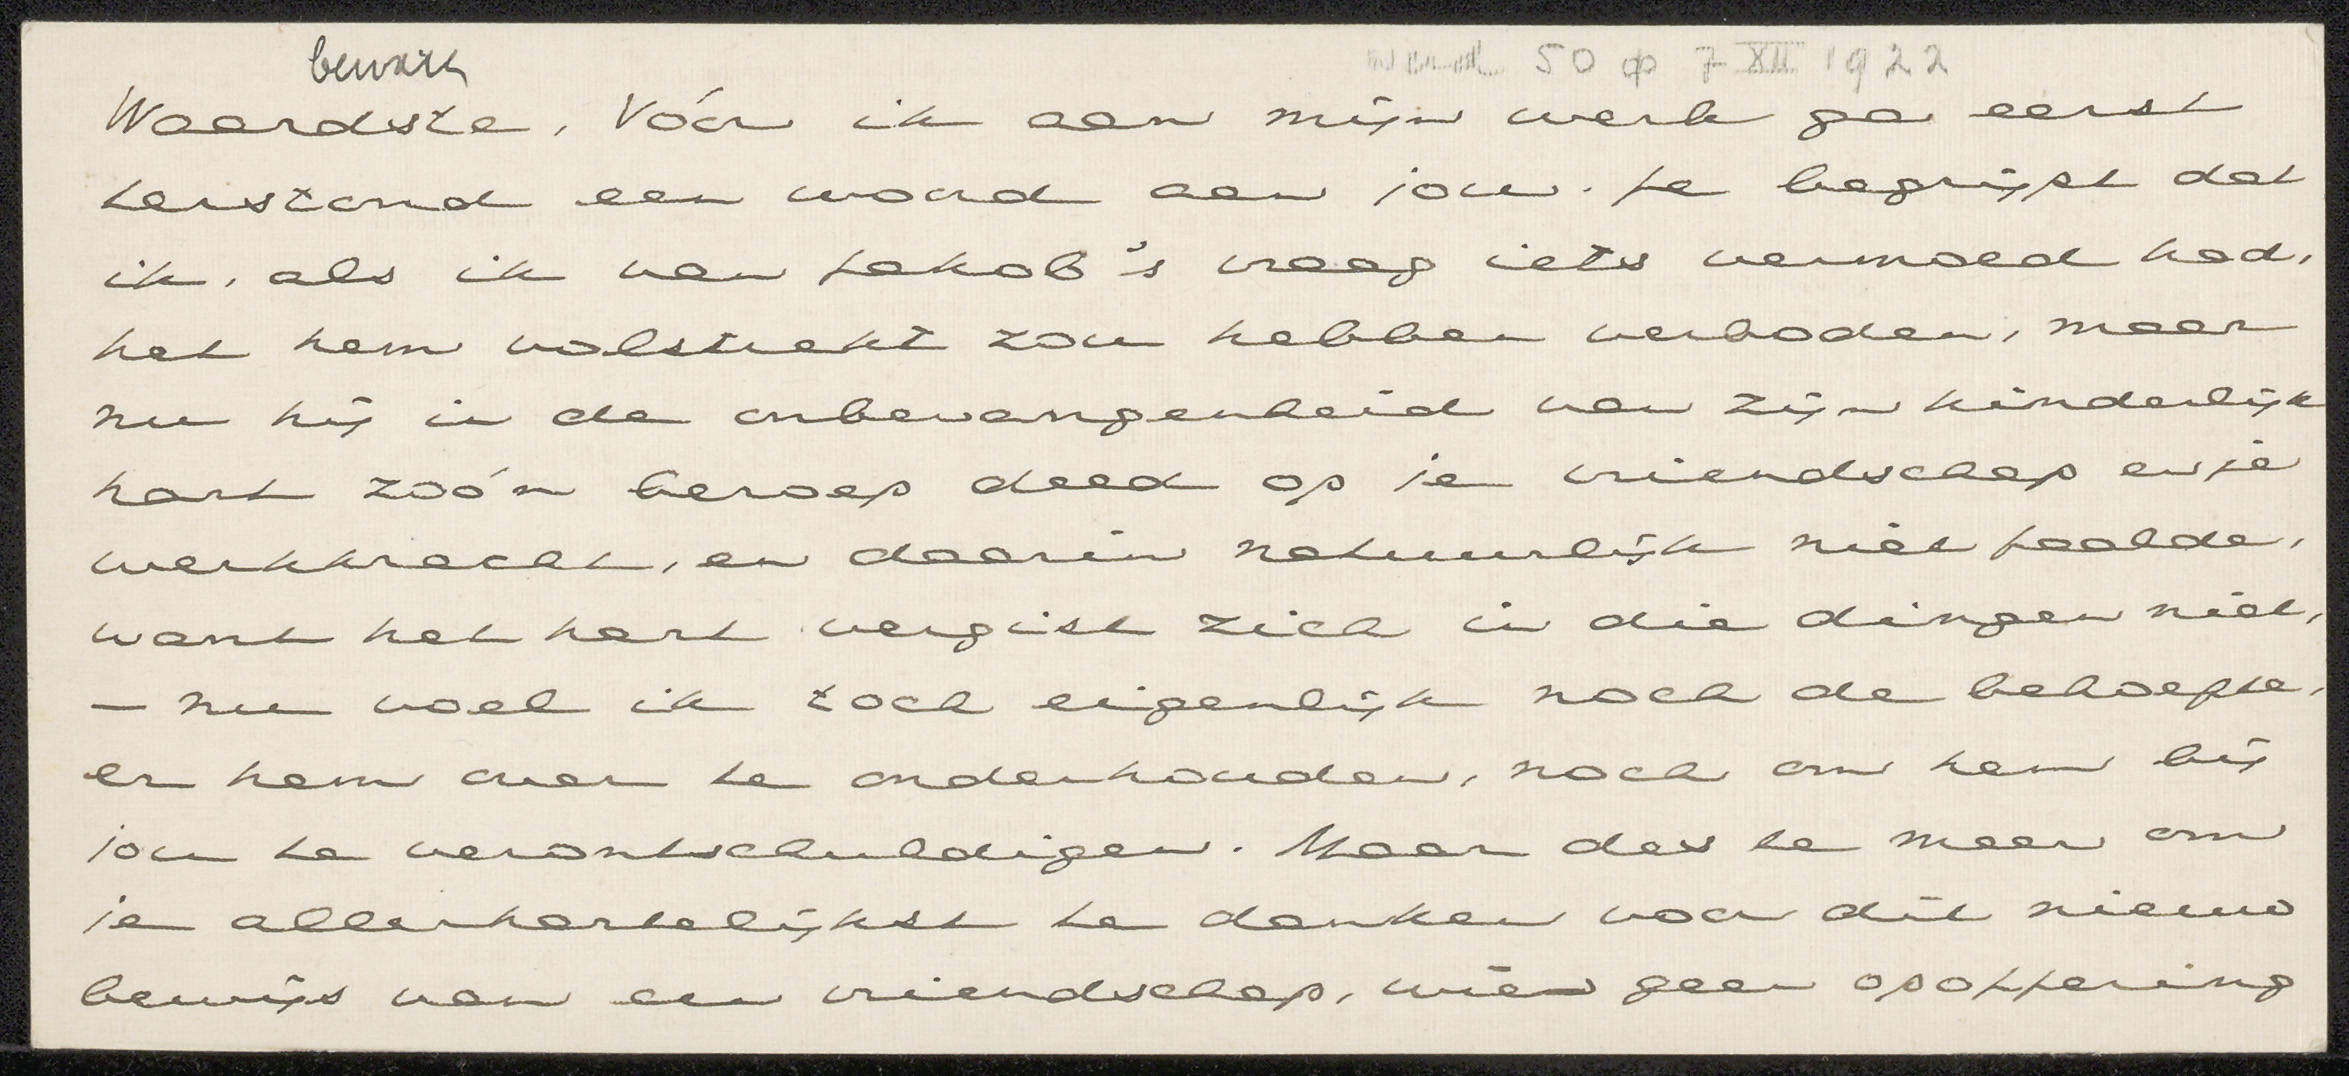 50 φ 7 XII 1922
Waardste, Vóór ik aan mijn werk ga eerst
terstond een woord aan jou. Je begrijpt dat
ik, als ik van Jakob's vraag iets vermoed had,
het hem volstrekt zou hebben verboden, maar
nu hij in de onbevangenheid van zijn kinderlijk
hart zóó'n beroep deed op je vriendschap en je
werkkracht, en daarin natuurlijk niet faalde,
want het hart vergist zich in die dingen niet,
— nu voel ik toch eigenlijk noch de behoefte,
er hem over te onderhouden, noch om hem bij
jou te verontschuldigen. Maar des te meer om
je allerhartelijkst te danken voor dit nieuw
bewijs van een vriendschap, wien geen opoffering